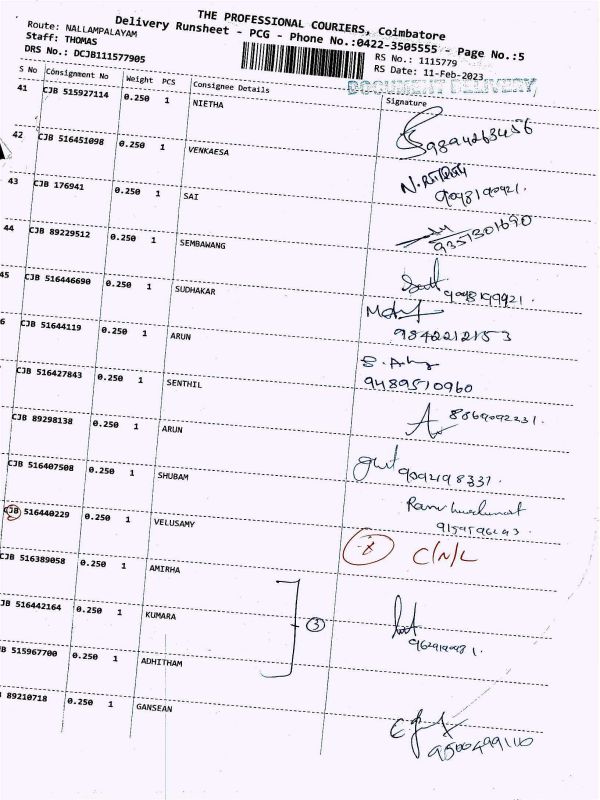 THE PROFESSIONAL COURIERS, Coimbatore
Delivery Runsheet - PCG - Phone No.:0422-3505555 - Page No.:5
Route: NALLAMPALAYAM
Staff: THOMAS
DRS No.: DCJB111577905
RS No.: 1115779
RS Date: 11-Feb-2023
DOCUMENT DELIVERY
S No Consignment No Weight PCS Consignee Details Signature
41 CJB 515927114 0.250 1 NIETHA
9894263456
42 CJB 516451098 0.250 1 VENKAESA
43 CJB 176941 0.250 1 SAI
9357301690
44 CJB 89229512 0.250 1 SEMBAWANG
45 CJB 516446690 0.250 1 SUDHAKAR
9842212153
6 CJB 51644119 0.250 1 ARUN
9489510960
CJB 516427843 0.250 1 SENTHIL
CJB 89298138 0.250 1 ARUN
CJB 516407508 0.250 1 SHUBAM
CJB 516440229 0.250 1 VELUSAMY
x C/N/L
CJB 516389058 0.250 1 AMIRHA
JB 516442164 0.250 1 KUMARA
3
B 515967700 0.250 1 ADHITHAM
89210718 0.250 1 GANSEAN